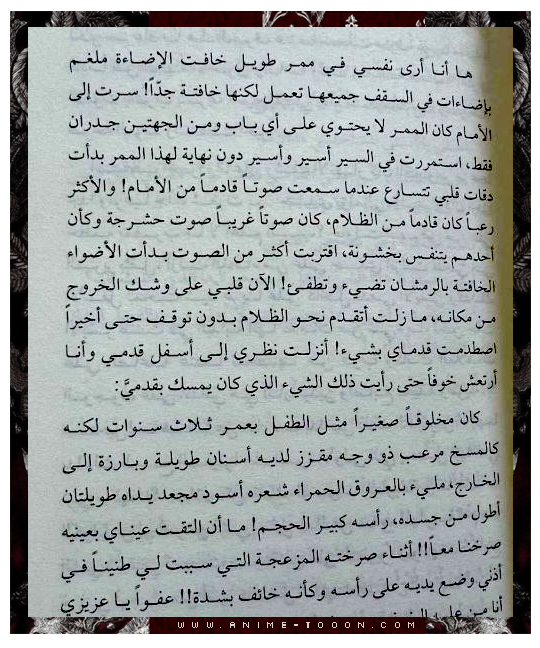 ها أنا أرى نفسي في ممر طويل خافت الإضاءة ملغم
بإضاءات في السقف جميعها تعمل لكنها خافتة جدّاً! سرت إلى
الأمام كان الممر لا يحتوي على أي باب ومن الجهتين جدران
فقط، استمررت في السير أسير وأسير دون نهاية لهذا الممر بدأت
دقات قلبي تتسارع عندما سمعت صوتاً قادماً من الأمام! والأكثر
رعباً كان قادماً من الظلام، كان صوتاً غريباً صوت حشرجة وكأن
أحدهم يتنفس بخشونة، اقتربت أكثر من الصوت بدأت الأضواء
الخافتة بالرمشان تضيء وتطفئ! الآن قلبي على وشك الخروج
من مكانه، ما زلت أتقدم نحو الظلام بدون توقف حتى أخيراً
اصطدمت قدماي بشيء! أنزلت نظري إلى أسفل قدمي وأنا
أرتعش خوفاً حتى رأيت ذلك الشيء الذي كان يمسك بقدميَّ:
كان مخلوقاً صغيراً مثل الطفل بعمر ثلاث سنوات لكنه
كالمسخ مرعب ذو وجه مقزز لديه أسنان طويلة وبارزة إلى
الخارج، مليء بالعروق الحمراء شعره أسود مجعد يداه طويلتان
أطول من جسده، رأسه كبير الحجم! ما أن التقت عيناي بعينيه
صرخنا معاً!! أثناء صرخته المزعجة التي سببت لي طنيناً في
أذني وضع يديه على رأسه وكأنه خائف بشدة!! عفواً يا عزيزي
أنا من عليه
WWW.ANIME-TOOON.COM